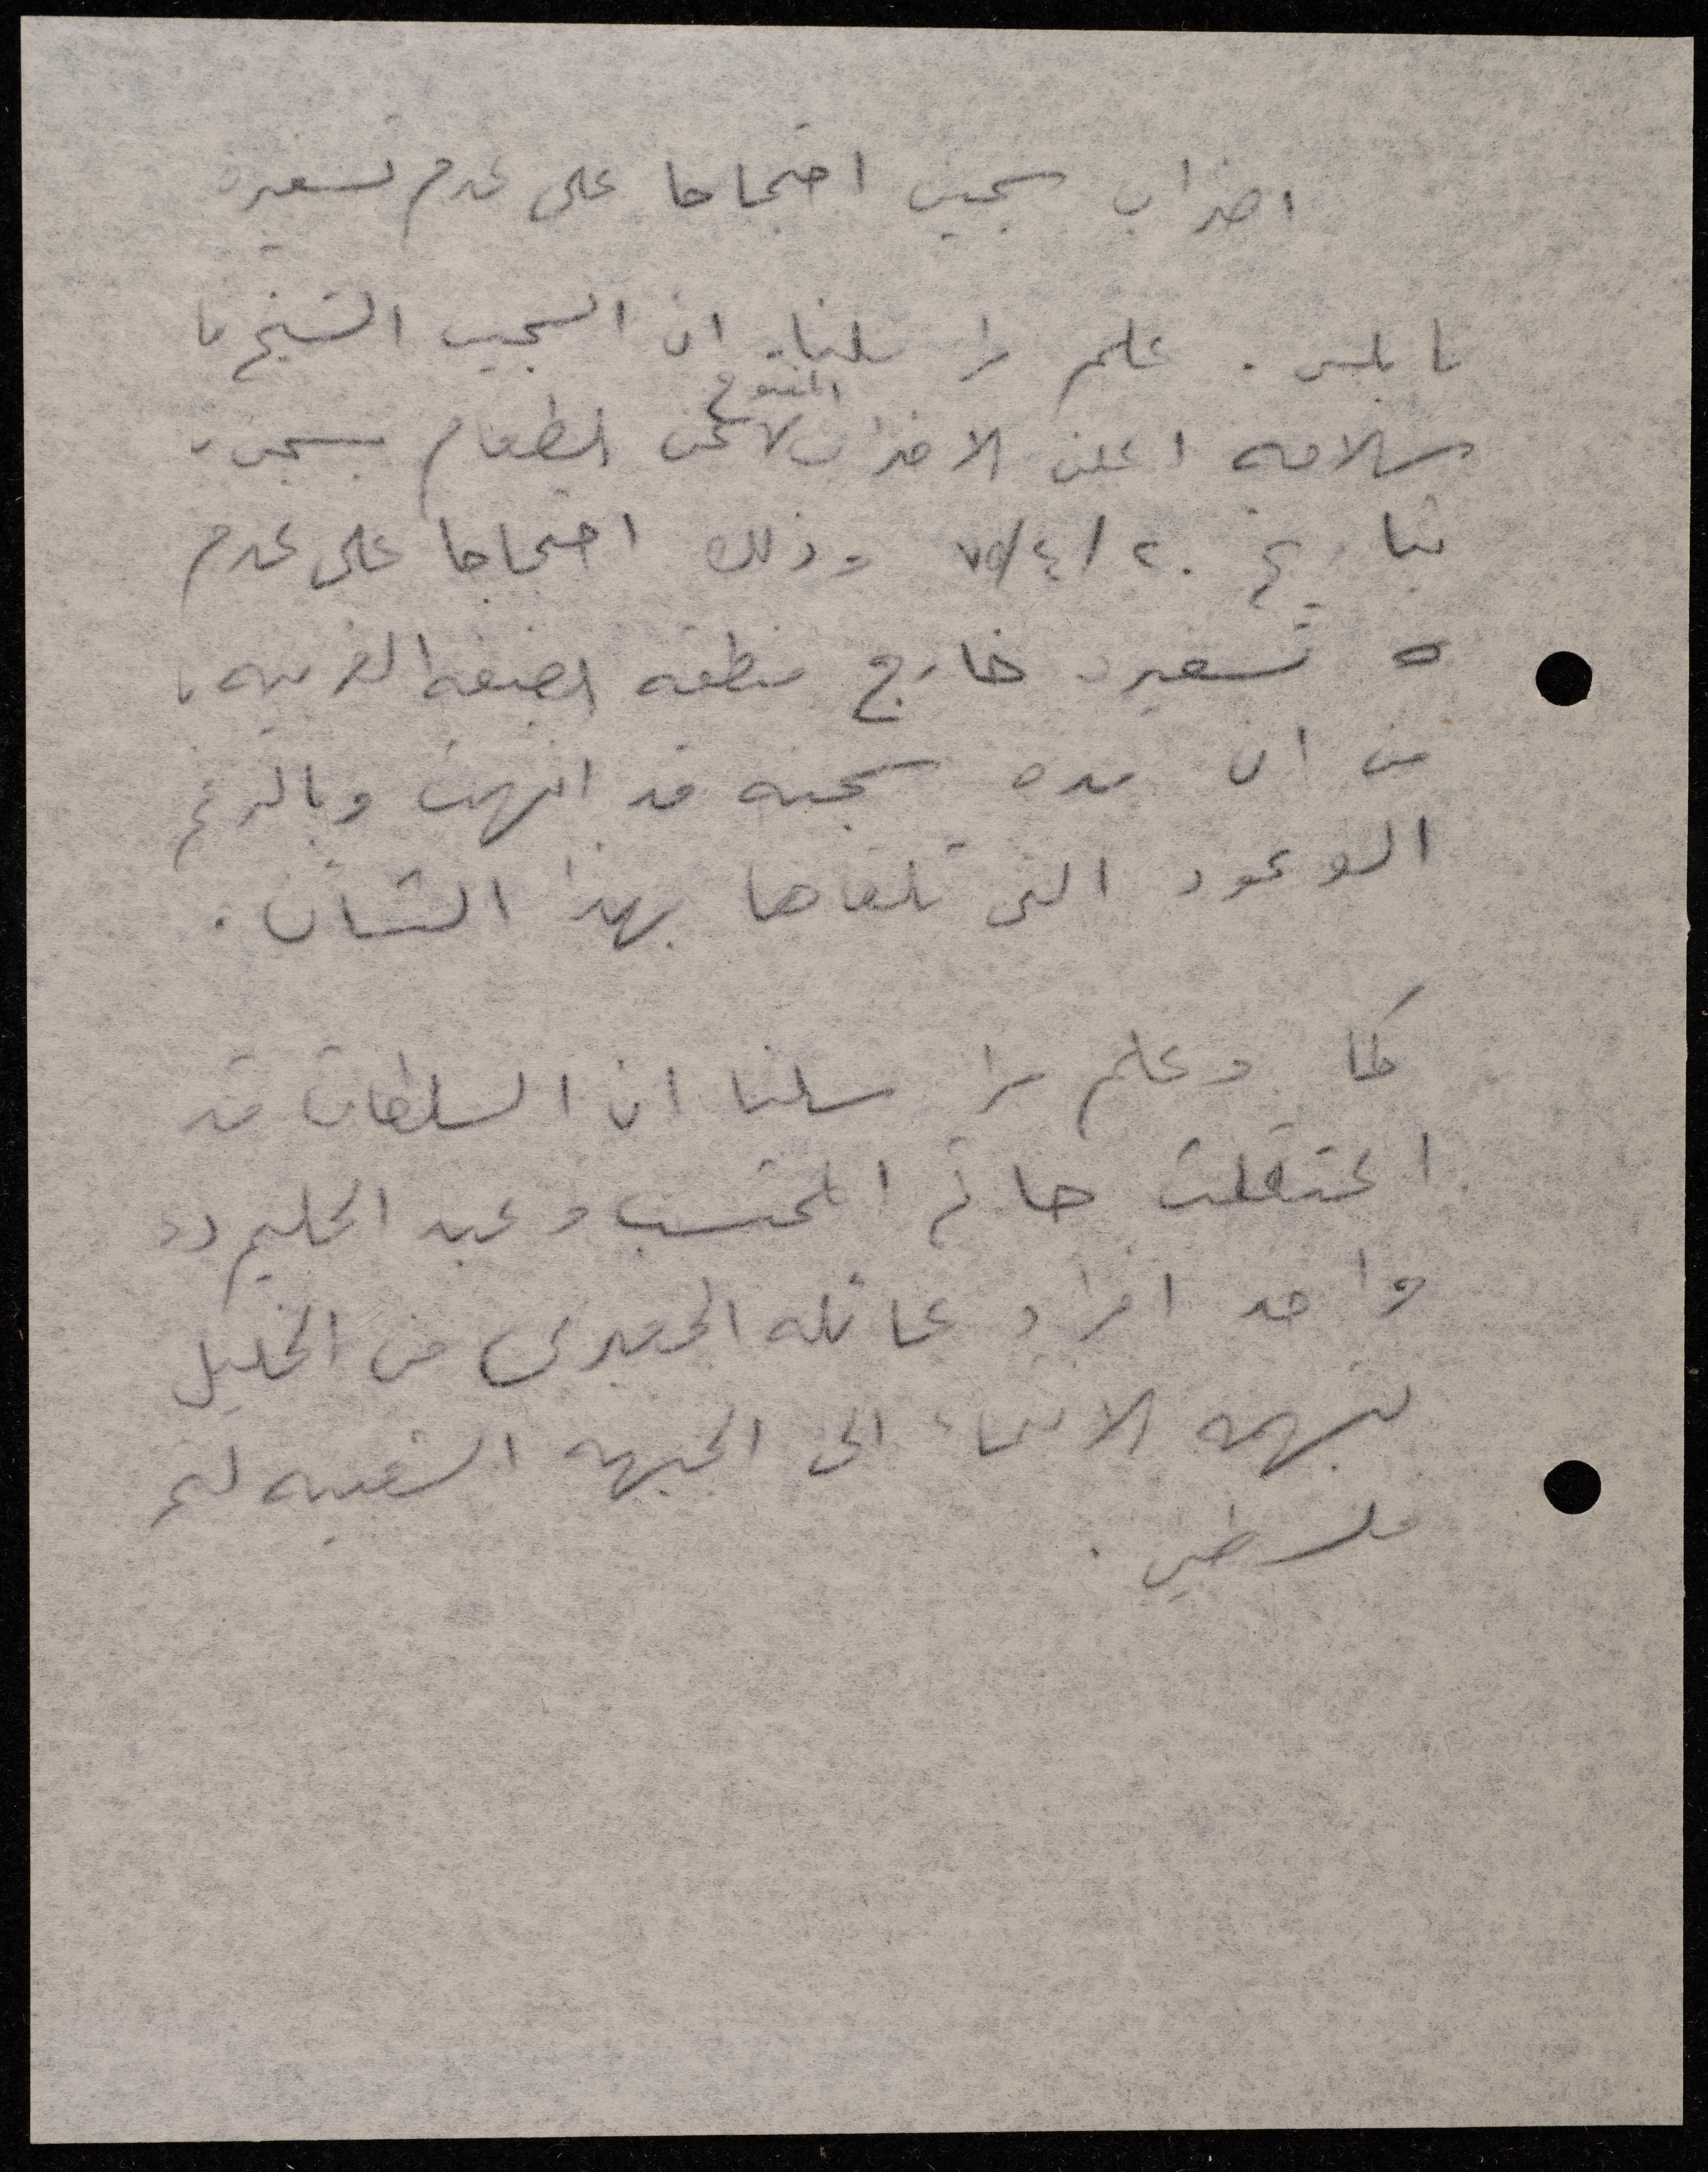 اضراب سجين احتجاجا على عدم تسفيره
نابلس . علم مراسلنا ان السجين الشيخ
سلامه اعلن الاضراب المفتوح عن الطعام بسجن
بتاريخ ٢٠/٤/٧٥ وذلك احتجاجا على عدم
تسفيره خارج منطقه الضفه الغربيه
من ان مده سجنه قد انتهت وبالرغم
الوعود التى تلقاها بهذا الشأن .
كما وعلم مراسلنا ان السلطات قد
اعتقلت حاتم المحتسب و عبد الحليم
واحد افراد عائله الجعبرى من الخليل
بتهمه الانتماء الى الجبهه الشعبيه لتحر
فلسطين .